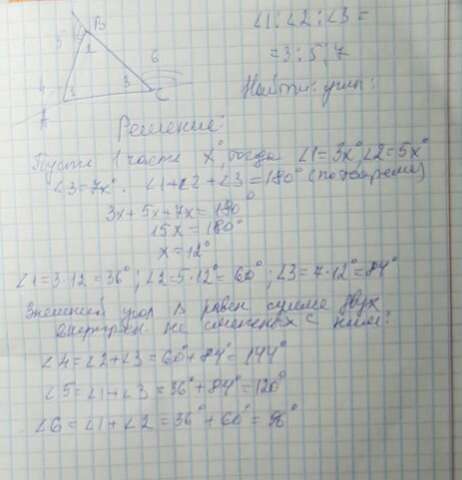 ∠1:∠2:∠3=
=3:5:7
Найти: углы:
B
5
1
6
4
2
3
A
C
Решение:
Пусть 1 часть x°, тогда ∠1=3x°, ∠2=5x°
∠3=7x°. ∠1+∠2+∠3=180° (по теореме)
3x+5x+7x=180°
15x=180°
x=12°
∠1=3·12=36°; ∠2=5·12°=60°; ∠3=7·12°=84°
Внешний угол равен сумме двух
не смежных с ним:
∠4=∠2+∠3=60°+84°=144°
∠5=∠1+∠3=36°+84°=120°
∠6=∠1+∠2=36°+60°=96°